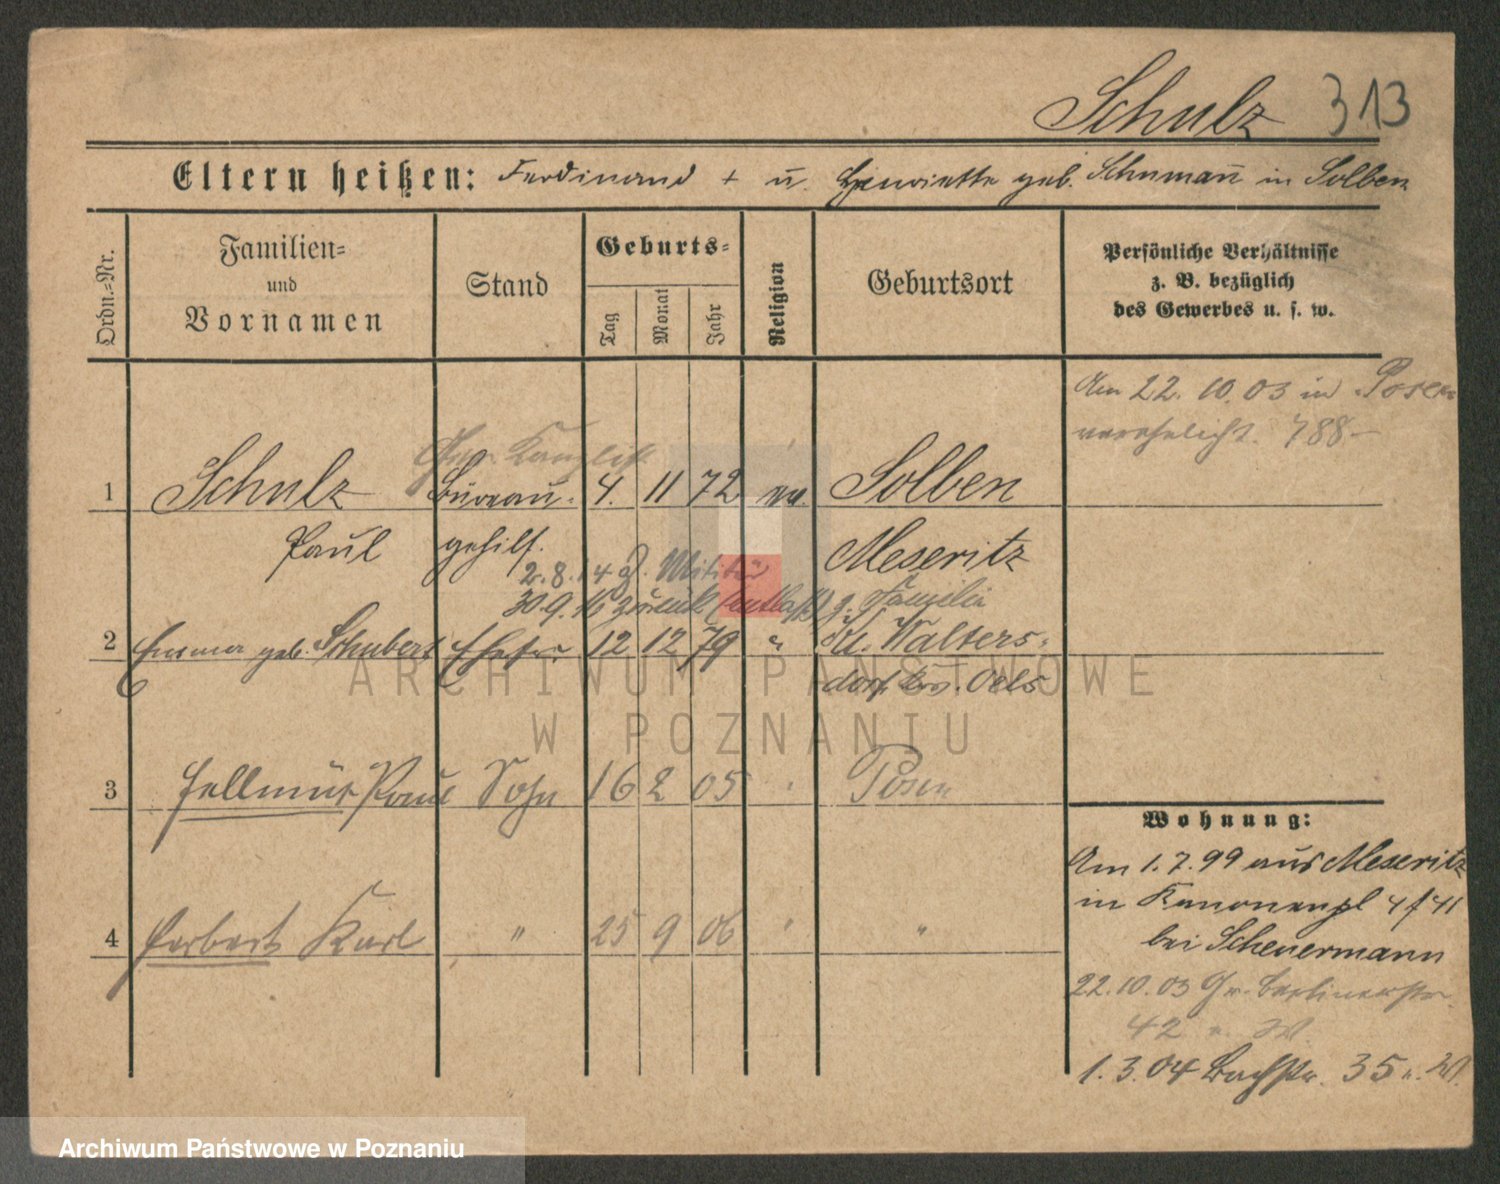 Schulz 313
Eltern heißen: Ferdinand + u. Henriette geb. Schumañ in Solben
Ordn.=Nr.
Familien=
und
Vornamen
Stand
Geburts=
Tag
Monat
Jahr
Religion
Geburtsort
Persönliche Verhältnisse
z. B. bezüglich
des Gewerbes u. s. w.
Am 22. 10. 03 in Posen
verehelicht. 788–
Kanzlist
1 Schulz Büreau- 4. 11 72 ev. Solben
Paul gehilf. Meseritz
2.8.14 z. Militär
30.9.16 zurück (entlaß.) z. Familie
2 Emma geb. Schubert Ehefr. 12 12 79 " Kl. Walters-
dorf Krs. Oels
3 Hellmut Paul Sohn 16 2 05 " Posen
4 Herbert Karl " 25 9 06 " "
Wohnung:
Am 1.7.99 aus Meseritz
in Kanonenpl 4 f 41
bei Scheuermann
22.10.03 Gr. Berlinerstr.
42 u. W.
1.3.04 Bachstr. 35 u. W.
ARCHIWUM PAŃSTWOWE
W POZNANIU
Archiwum Państwowe w Poznaniu